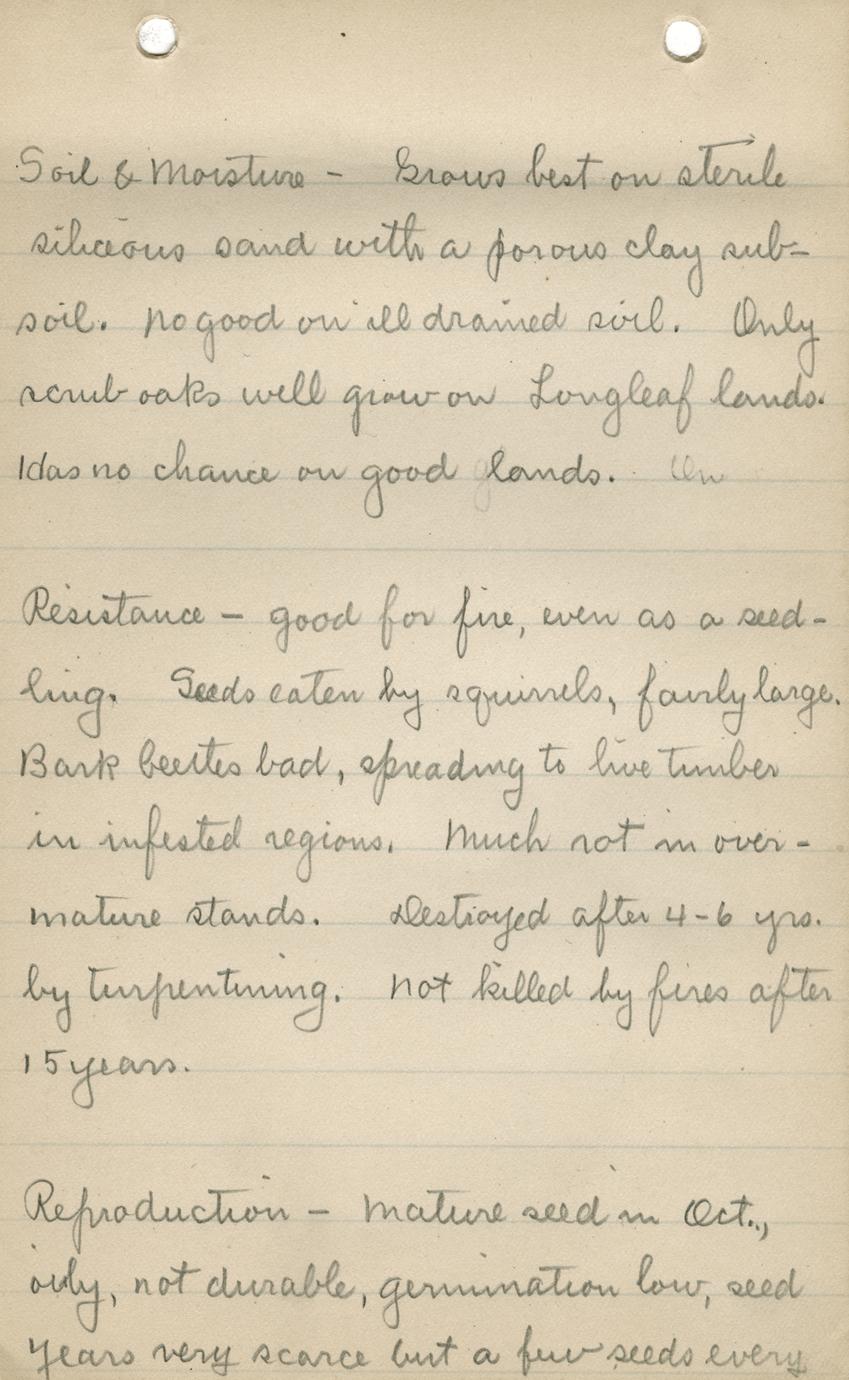 Soil & Moisture - Grows best on sterile
siliceous sand with a porous clay sub-
soil. No good on ill drained soil. Only
scrub oaks will grow on Longleaf lands.
Has no chance on good lands. On
Resistance - good for fire, even as a seed-
ling. Seeds eaten by squirrels, fairly large.
Bark beetles bad, spreading to live timber
in infested regions. Much rot in over-
mature stands. Destroyed after 4-6 yrs.
by turpentining. Not killed by fires after
15 years.
Reproduction - Mature seed in Oct.,
oily, not durable, germination low, seed
years very scarce but a few seeds every